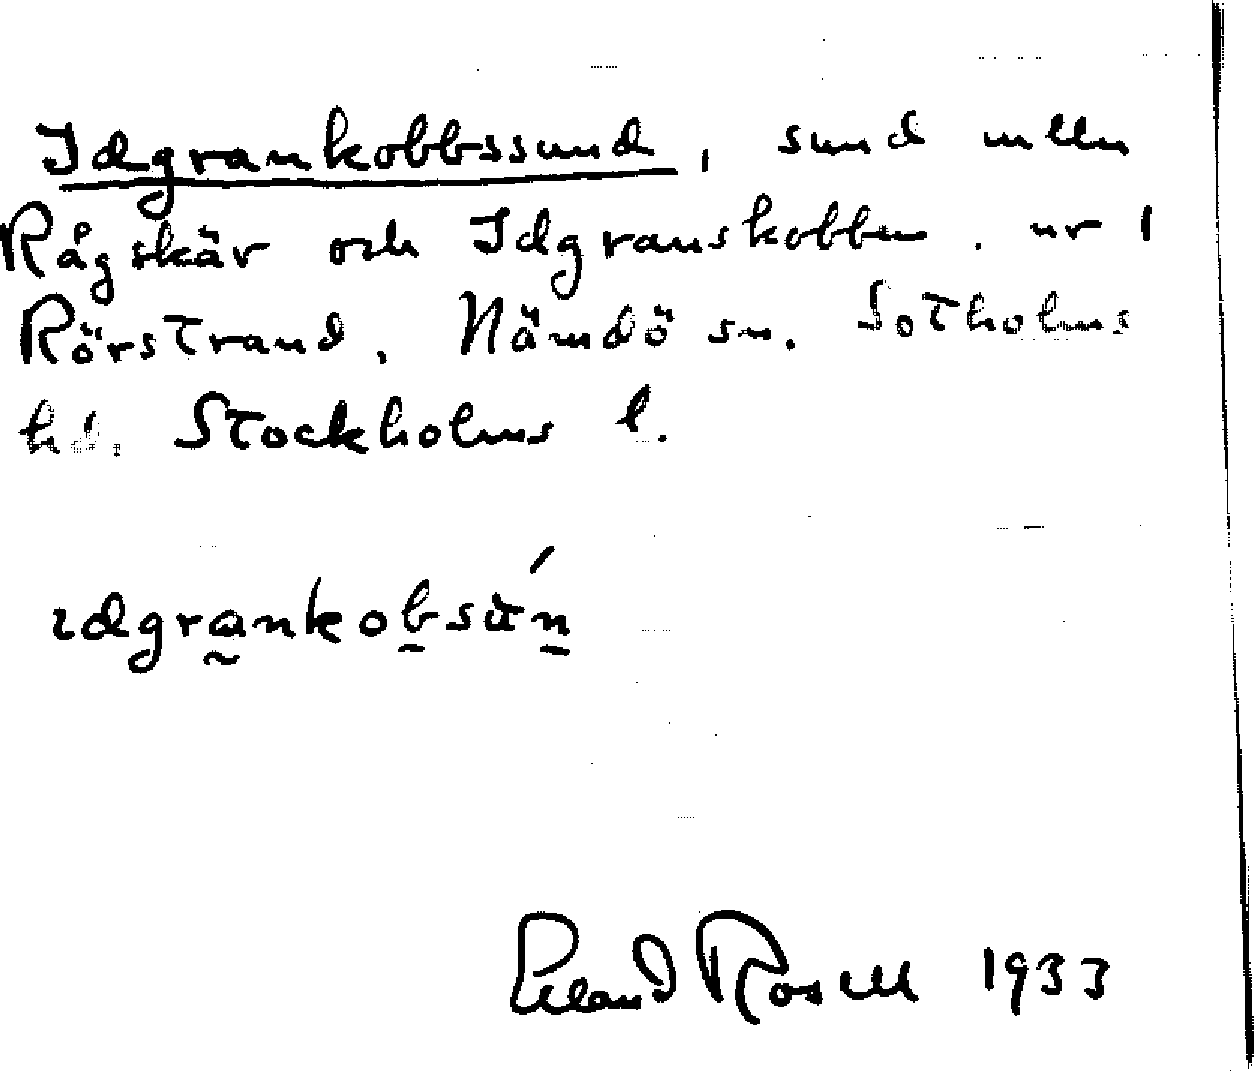 Idgrankobbssund, sund mellan
Rågskär och Idgranskobben. nr 1
Rörstrand. Nämdö sn. Sotholms
hd. Stockholms l.
ıdgrankobsún
Erland Rosell 1933